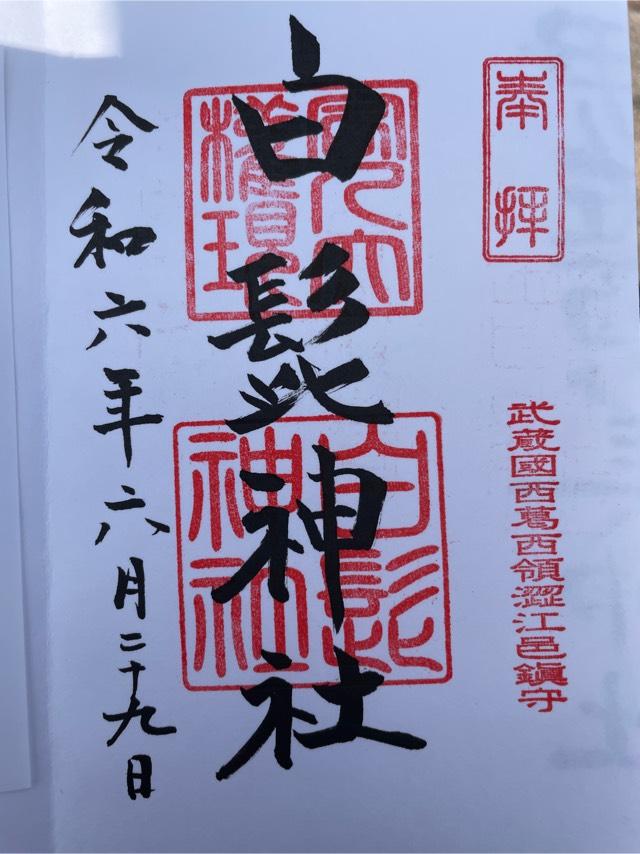 奉拝
武蔵國西葛西領澀江邑鎮守
白髭神社
白髭神社
令和六年六月二十九日